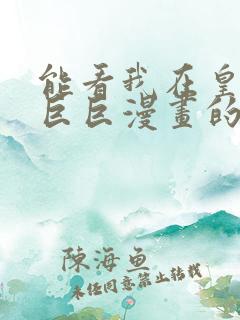 能看我在皇
巨巨漫畫的
陳海魚
未经同意禁止转载